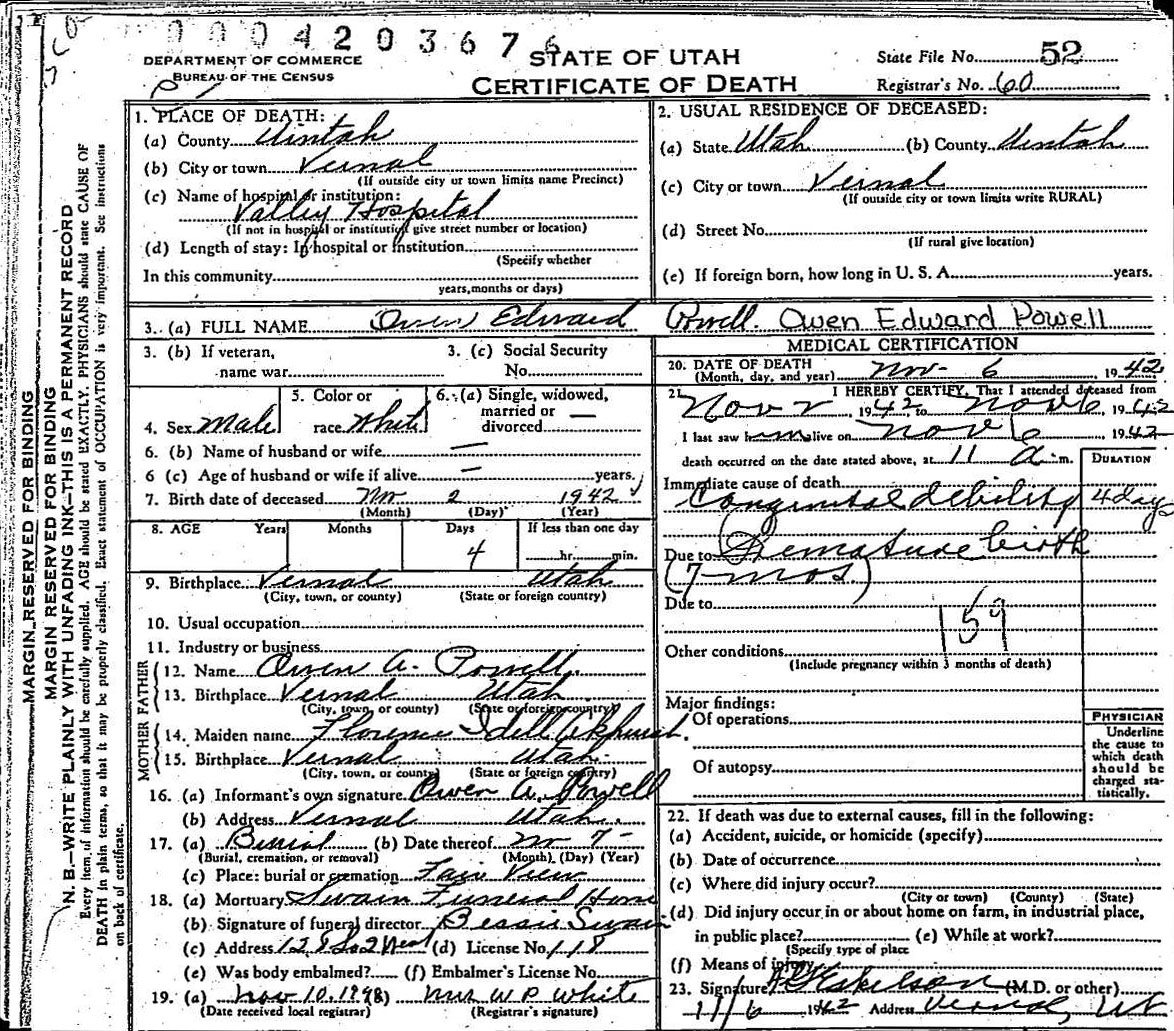 0004203676
DEPARTMENT OF COMMERCE
BUREAU OF THE CENSUS
STATE OF UTAH
CERTIFICATE OF DEATH
State File No. 52
Registrar's No. 60
MARGIN RESERVED FOR BINDING
MARGIN RESERVED FOR BINDING
N. B.—WRITE PLAINLY WITH UNFADING INK—THIS IS A PERMANENT RECORD
Every item of information should be carefully supplied. AGE should be stated EXACTLY. PHYSICIANS should state CAUSE OF
DEATH in plain terms, so that it may be properly classified. Exact statement of OCCUPATION is very important. See instructions
on back of certificate.
1. PLACE OF DEATH:
(a) County Uintah
(b) City or town Vernal
(If outside city or town limits name Precinct)
(c) Name of hospital or institution:
Valley Hospital
(If not in hospital or institution give street number or location)
(d) Length of stay: In hospital or institution
(Specify whether
In this community
years, months or days)
2. USUAL RESIDENCE OF DECEASED:
(a) State Utah (b) County Uintah
(c) City or town Vernal
(If outside city or town limits write RURAL)
(d) Street No.
(If rural give location)
(e) If foreign born, how long in U. S. A. years.
3. (a) FULL NAME Owen Edward Powell Owen Edward Powell
3. (b) If veteran,
name war
3. (c) Social Security
No.
4. Sex Male
5. Color or
race White
6. (a) Single, widowed,
married or
divorced —
6. (b) Name of husband or wife —
6 (c) Age of husband or wife if alive — years.
7. Birth date of deceased Nov 2 1942
(Month) (Day) (Year)
8. AGE Years Months Days If less than one day
4 hr. min.
9. Birthplace Vernal Utah
(City, town, or county) (State or foreign country)
10. Usual occupation
11. Industry or business
FATHER
12. Name Owen A. Powell
13. Birthplace Vernal Utah
(City, town, or county) (State or foreign country)
MOTHER
14. Maiden name Florence Idell
15. Birthplace Vernal Utah
(City, town, or county) (State or foreign country)
16. (a) Informant's own signature Owen A. Powell
(b) Address Vernal Utah.
17. (a) Burial (b) Date thereof Nov 7 -
(Burial, cremation, or removal) (Month) (Day) (Year)
(c) Place: burial or cremation Fair View
18. (a) Mortuary Swain Funeral Home
(b) Signature of funeral director Bessie Swain
(c) Address (d) License No. 118
(e) Was body embalmed? (f) Embalmer's License No.
19. (a) Nov 10. (b) Mrs W P White
(Date received local registrar) (Registrar's signature)
MEDICAL CERTIFICATION
20. DATE OF DEATH Nov- 6 1942
(Month, day, and year)
21. I HEREBY CERTIFY, That I attended deceased from
Nov 2, 1942 to Nov 6, 1942
I last saw him alive on Nov 6 1942
death occurred on the date stated above, at 11 a. m.
DURATION
Immediate cause of death
Congenital debility 4 days
Due to Premature birth
(7 mos.)
Due to
159
Other conditions
(Include pregnancy within 3 months of death)
Major findings:
Of operations
Of autopsy
PHYSICIAN
Underline
the cause to
which death
should be
charged sta-
tistically.
22. If death was due to external causes, fill in the following:
(a) Accident, suicide, or homicide (specify)
(b) Date of occurrence
(c) Where did injury occur?
(City or town) (County) (State)
(d) Did injury occur in or about home on farm, in industrial place,
in public place? (e) While at work?
(Specify type of place
(f) Means of injury
23. Signature Eskelson (M.D. or other)
11/6 1942 Address Vernal, Ut